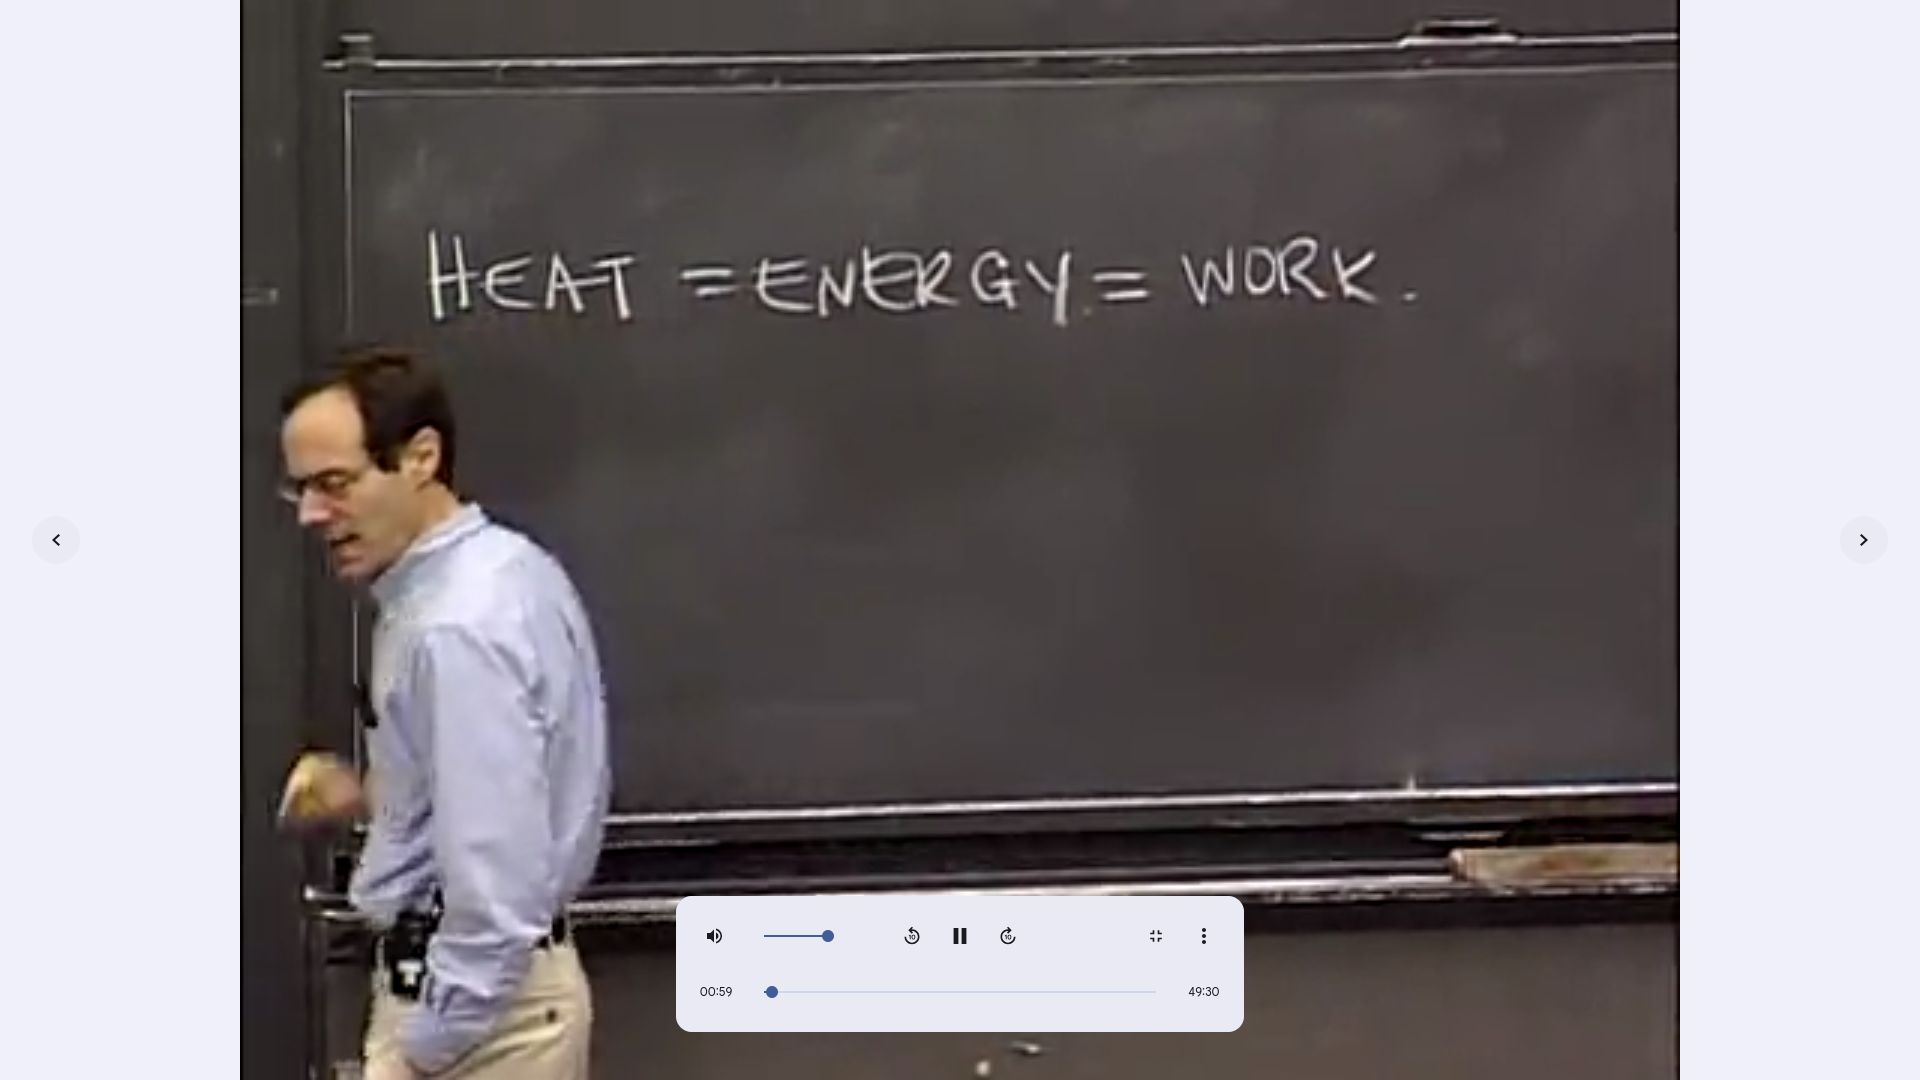 HEAT = ENERGY = WORK.
10
10
00:59
49:30